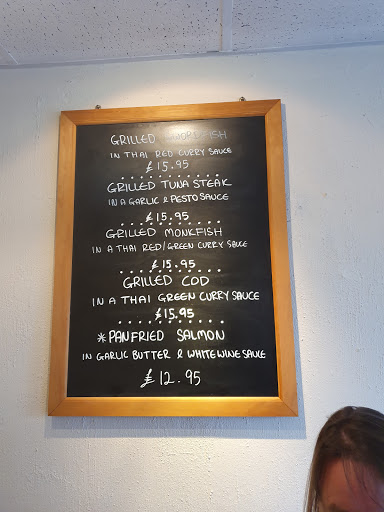 GRILLED SWORDFISH
IN THAI RED CURRY SAUCE
£15.95
GRILLED TUNA STEAK
IN A GARLIC & PESTO SAUCE
£15.95
GRILLED MONKFISH
IN A THAI RED/GREEN CURRY SAUCE
£15.95
GRILLED COD
IN A THAI GREEN CURRY SAUCE
£15.95
*PANFRIED SALMON
IN GARLIC BUTTER & WHITE WINE SAUCE
£12.95